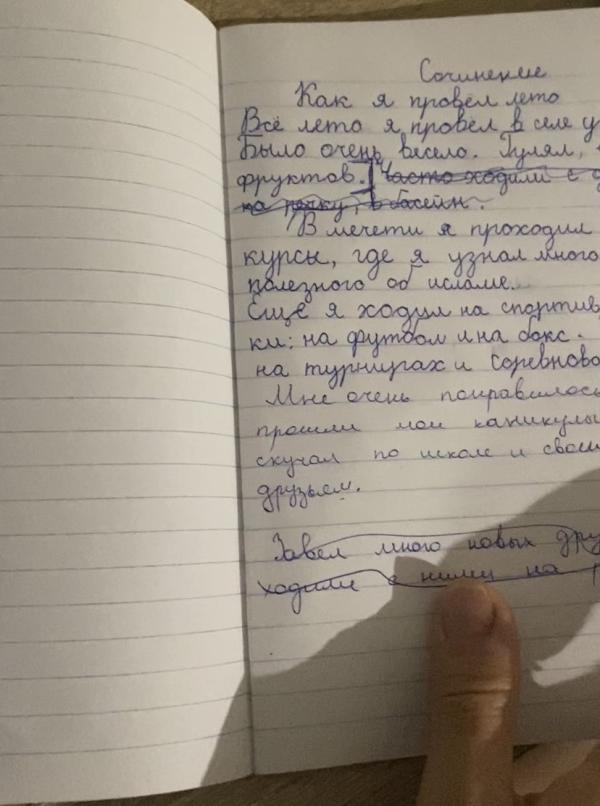 Сочинение
Как я провёл лето
Всё лето я провёл в селе у
Было очень весело. Гулял,
фруктов. Часто ходили с д
на речку, в басейн.
В мечети я проходил
курсы, где я узнал много
полезного об исламе.
Ещё я ходил на спортив
ки: на футбол и на бокс.
на турнирах и соревнова
Мне очень понравилось
прошли мои каникулы
скучал по школе и свои
друзьям.
Завел много новых дру
ходили с ними на